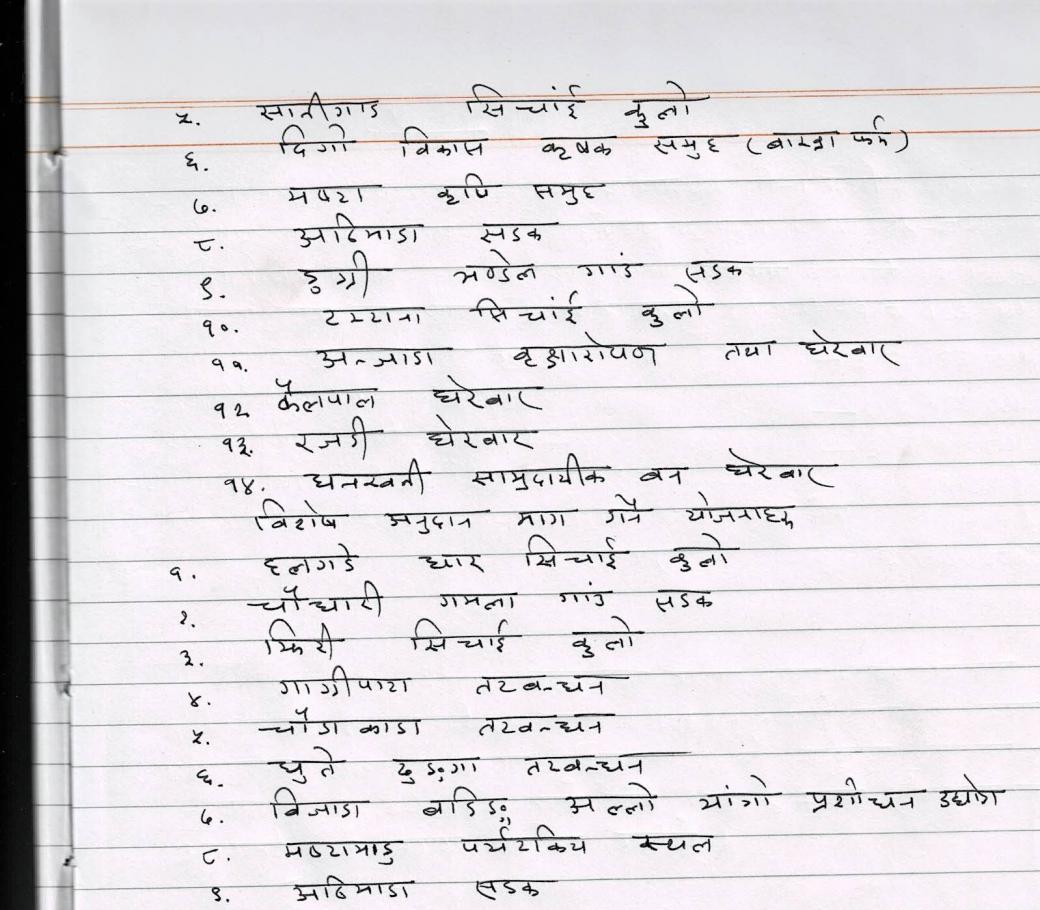 ५. सानीगाड सिचांई कुलो
६. दिगो विकास कृषक समुह (बाख्रा फर्म)
७. मष्टा कृषि समुह
८. आटिमाडा सडक
९. डुग्री भण्डेल गांउ सडक
१०. टम्टाना सिचांई कुलो
११. अन्जाडा वृक्षारोपण तथा घेरबार
१२ कैलपाल घेरबार
१३. रजडी घेरबार
१४. धनखनी सामुदायीक वन घेरबार
विशेष अनुदान माग गर्ने योजनाहरु
१. हलगडे धार सिचाई कुलो
२. चौधारी गमला गांउ सडक
३. झिरी सिचाई कुलो
४. गाग्रीपाटा तटबन्धन
५. चौडा काडा तटबन्धन
६. घुत्ते ढुङ्गा तटबन्धन
७. बिजाडा बडिङ्ग अल्लो भांगो प्रशोधन उद्योग
८. मष्टामाडु पर्यटकिय स्थल
९. आटिमाडा सडक